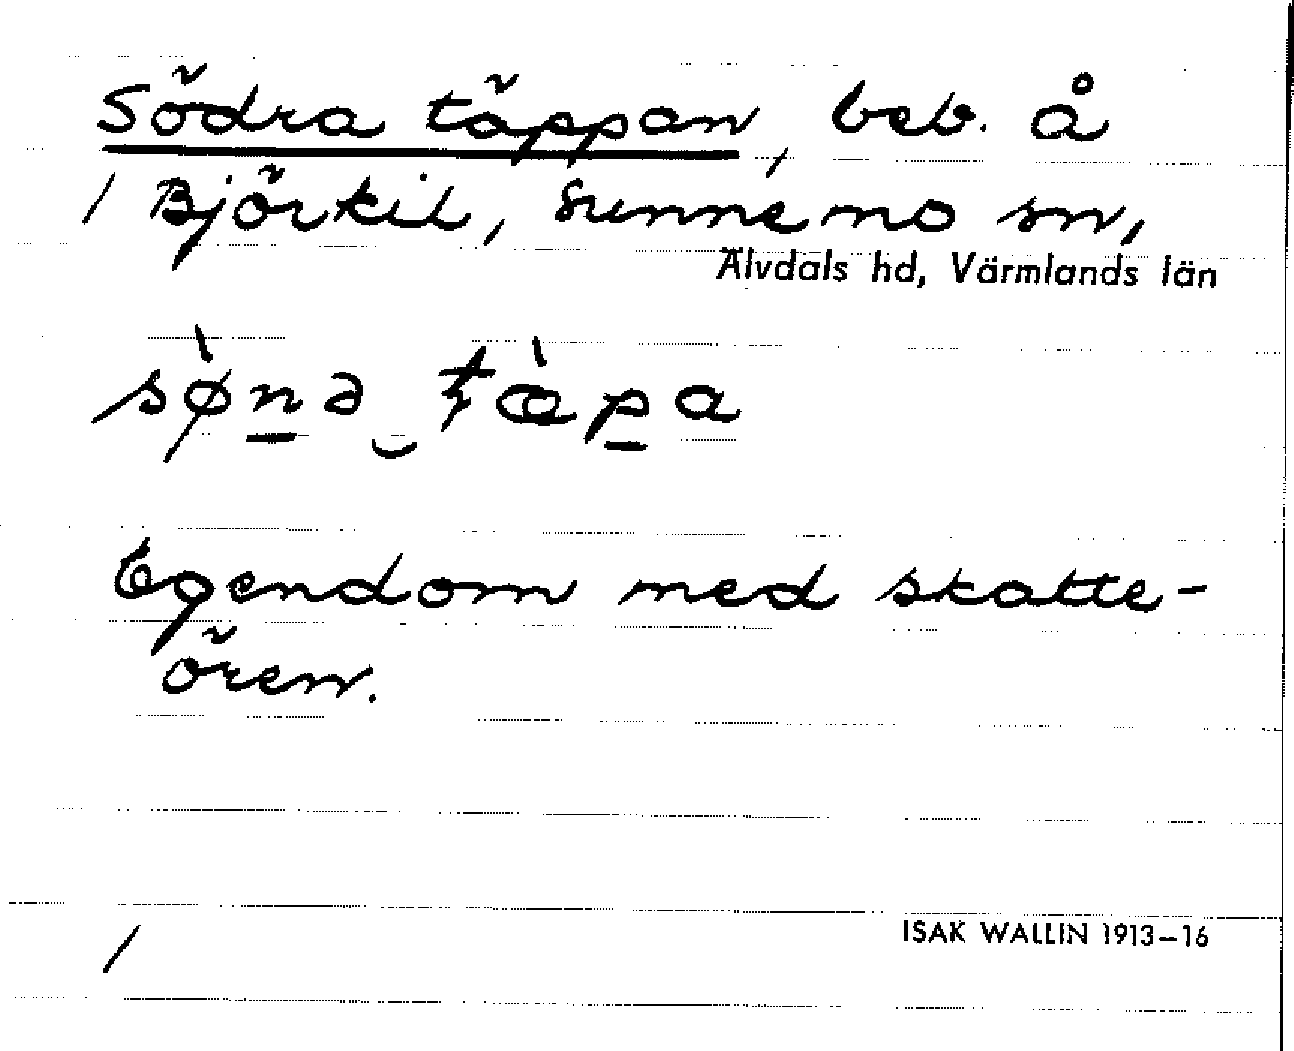 Södra täppan, beb. å
/ Björkil, Sunnemo sn,
Älvdals hd, Värmlands län
sø̀n̲ə‿tæ̀p̲a
Egendom med skatte-
ören.
/
ISAK WALLIN 1913–16